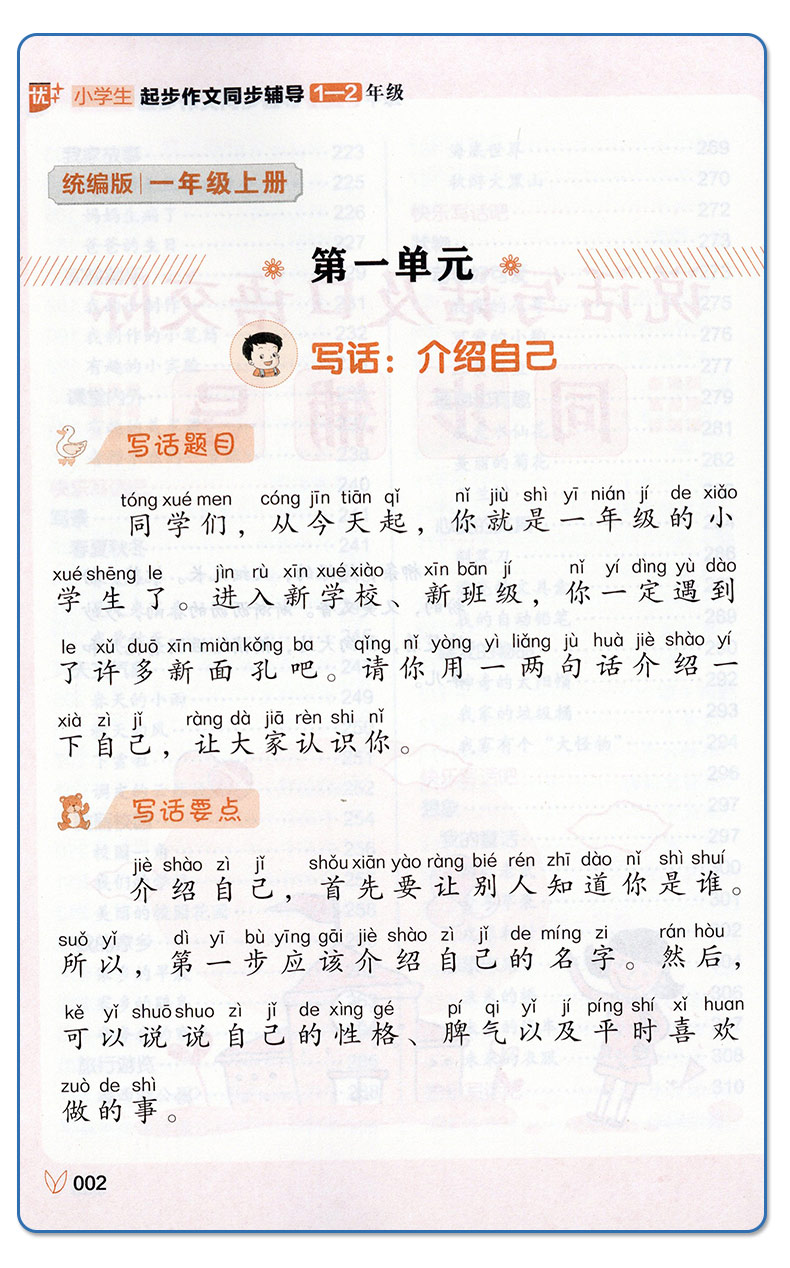 优++ 小学生 起步作文同步辅导 1—2 年级
统编版 一年级上册
第一单元
写话：介绍自己
写话题目
tóng xué men cóng jīn tiān qǐ nǐ jiù shì yī nián jí de xiǎo
同学们，从今天起，你就是一年级的小
xué shēng le jìn rù xīn xué xiào xīn bān jí nǐ yí dìng yù dào
学生了。进入新学校、新班级，你一定遇到
le xǔ duō xīn miàn kǒng ba qǐng nǐ yòng yì liǎng jù huà jiè shào yí
了许多新面孔吧。请你用一两句话介绍一
xià zì jǐ ràng dà jiā rèn shi nǐ
下自己，让大家认识你。
写话要点
jiè shào zì jǐ shǒu xiān yào ràng bié rén zhī dào nǐ shì shuí
介绍自己，首先要让别人知道你是谁。
suǒ yǐ dì yī bù yīng gāi jiè shào zì jǐ de míng zi rán hòu
所以，第一步应该介绍自己的名字。然后，
kě yǐ shuō shuo zì jǐ de xìng gé pí qi yǐ jí píng shí xǐ huan
可以说说自己的性格、脾气以及平时喜欢
zuò de shì
做的事。
002